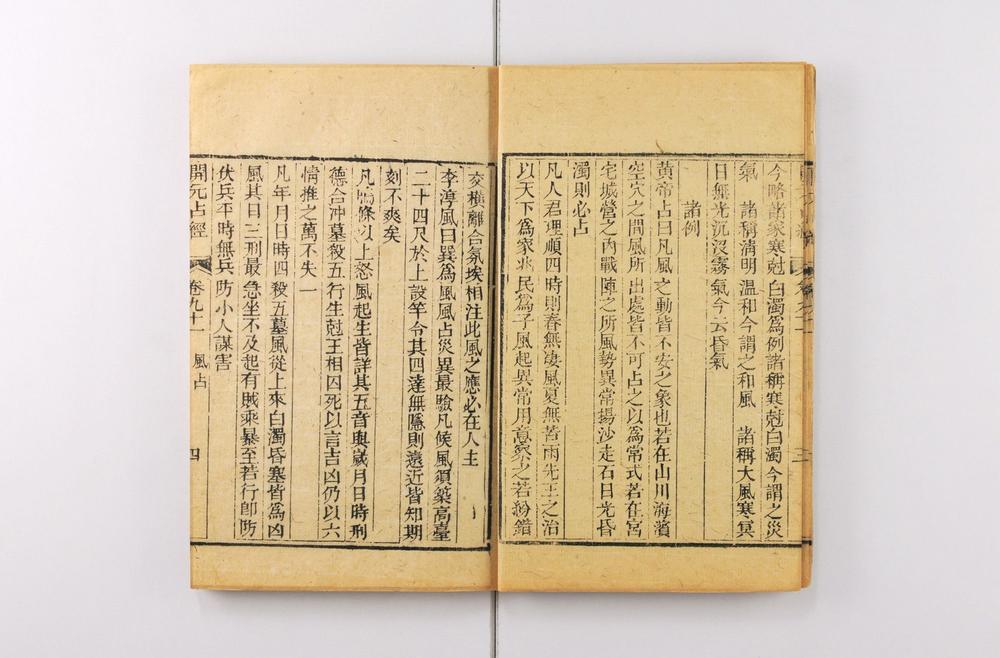 今略諸家寒尅白濁爲例諸稱寒尅白濁今謂之災
氣 諸稱清明溫和今謂之和風 諸稱大風寒冥
日無光沉沒霧氣今云昏氣
諸例
黃帝占曰凡風之動皆不安之象也若在山川海濱
空穴之間風所出處皆不可占之以爲常式若在宮
宅城營之內戰陣之所風勢異常揚沙走石日光昏
濁則必占
凡人君理順四時則春無淒風夏無苦雨先王之治
以天下爲家兆民爲子風起異常用意察之若紛錯
交橫離合氛埃相注此風之應必在人主
李淳風曰巽爲風風占災異最驗凡候風須築高臺
二十四尺於上設竿令其四達無隱則遠近皆知期
刻不爽矣
凡鳴條以上怒風起生皆詳其五音與歲月日時刑
德合沖墓殺五行生尅王相囚死以言吉凶仍以六
情推之萬不失一
凡年月日時四殺五墓風從上來白濁昏塞皆爲凶
風其日三刑最急坐不及起有賊乘暴至若行卽防
伏兵平時無兵防小人謀害
開元占經 卷九十一 風占 四